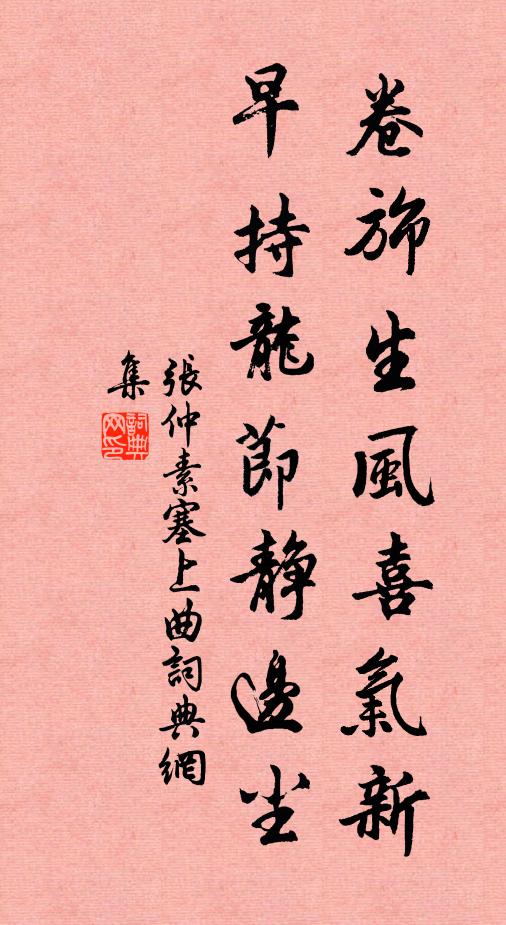 卷旆生風喜氣新
早持龍節静邊尘
張仲素塞上曲詞典網
集
詞典
网印